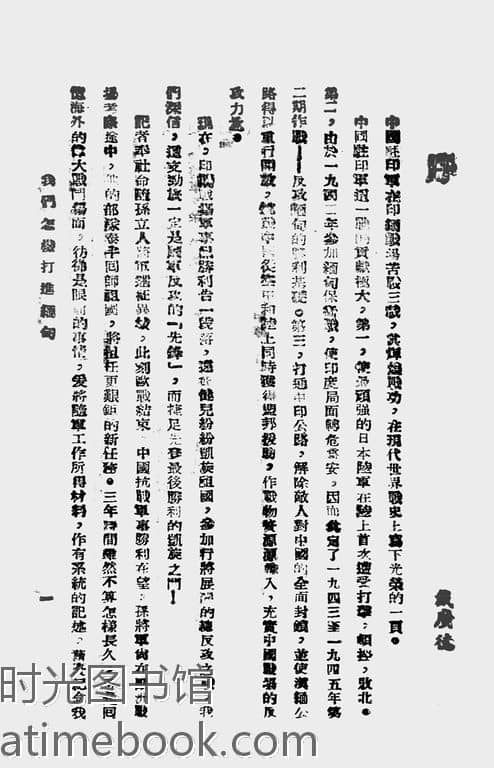 序
戴廣德
中國駐印軍在印緬戰場苦戰三載,其輝煌戰功,在現代世界戰史上寫下光榮的一頁。
中國駐印軍這一戰的貢獻極大,第一,使最頑強的日本陸軍在陸上首次遭受打擊,頓挫,敗北。
第二,由於一九四二年參加緬甸保衛戰,使印度局面轉危為安,因而奠定了一九四三至一九四五年第
二期作戰——反攻緬甸的勝利基礎。第三,打通中印公路,解除敵人對中國的全面封鎖,並使滇緬公
路得以重行開放,使中國從空中和陸上同時獲得盟邦援助,作戰物資源源輸入,充實中國戰場的反
攻力量。
現在,印緬戰場軍事已勝利告一段落,遠征健兒紛紛凱旋祖國,參加行將展開的總反攻之
我
們深信,這支勁旅一定是國軍反攻的「先鋒」,而捷足先登最後勝利的凱旋之門!
記者奉社命隨孫立人將軍遠征異域,此刻歐戰結束,中國抗戰軍事勝利在望,孫將軍尚在
戰
場
途中,他的部隊泰半回師祖國,將担任更艱鉅的新任務。三年時間雖然不算怎樣長久,
回
憶海外的偉大戰鬥場面,彷彿是眼前的事情,爰將隨軍工作所得材料,作有系統的記述,
我
我們怎樣打進緬甸
一
时光图书馆
atimebook.com